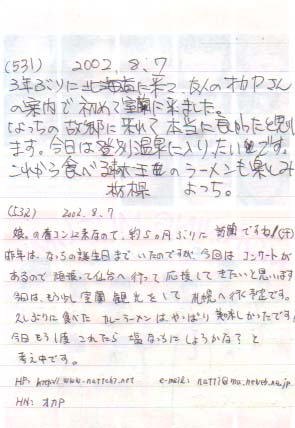 (531) 2002.8.7
3年ぶりに北海道に来て、友人のオカPさん
の案内で初めて室蘭に来ました。
なっちの故郷に来れて本当に良かったと思い
ます。今日は登別温泉に入りたいです。
これから食べる のラーメンも楽しみ
栃木県 よっち。
(532) 2002.8.7
娘。の春コンに来なので、約5ヵ月ぶりに室蘭ですね!(汗)
昨年は、なっちの誕生日までいたのですが、今回はコンサートが
あるので 仙台へ行って応援してきたいと思います
今日は、もう少し室蘭観光をして札幌へ行く予定です。
久しぶりに食べたカレーラーメンはやっぱり美味しかったです!
今日もう1度これたら塩 にしようかな?と
考え中です。
HP: http://www.natt23.net e-mail:
HN: オカP